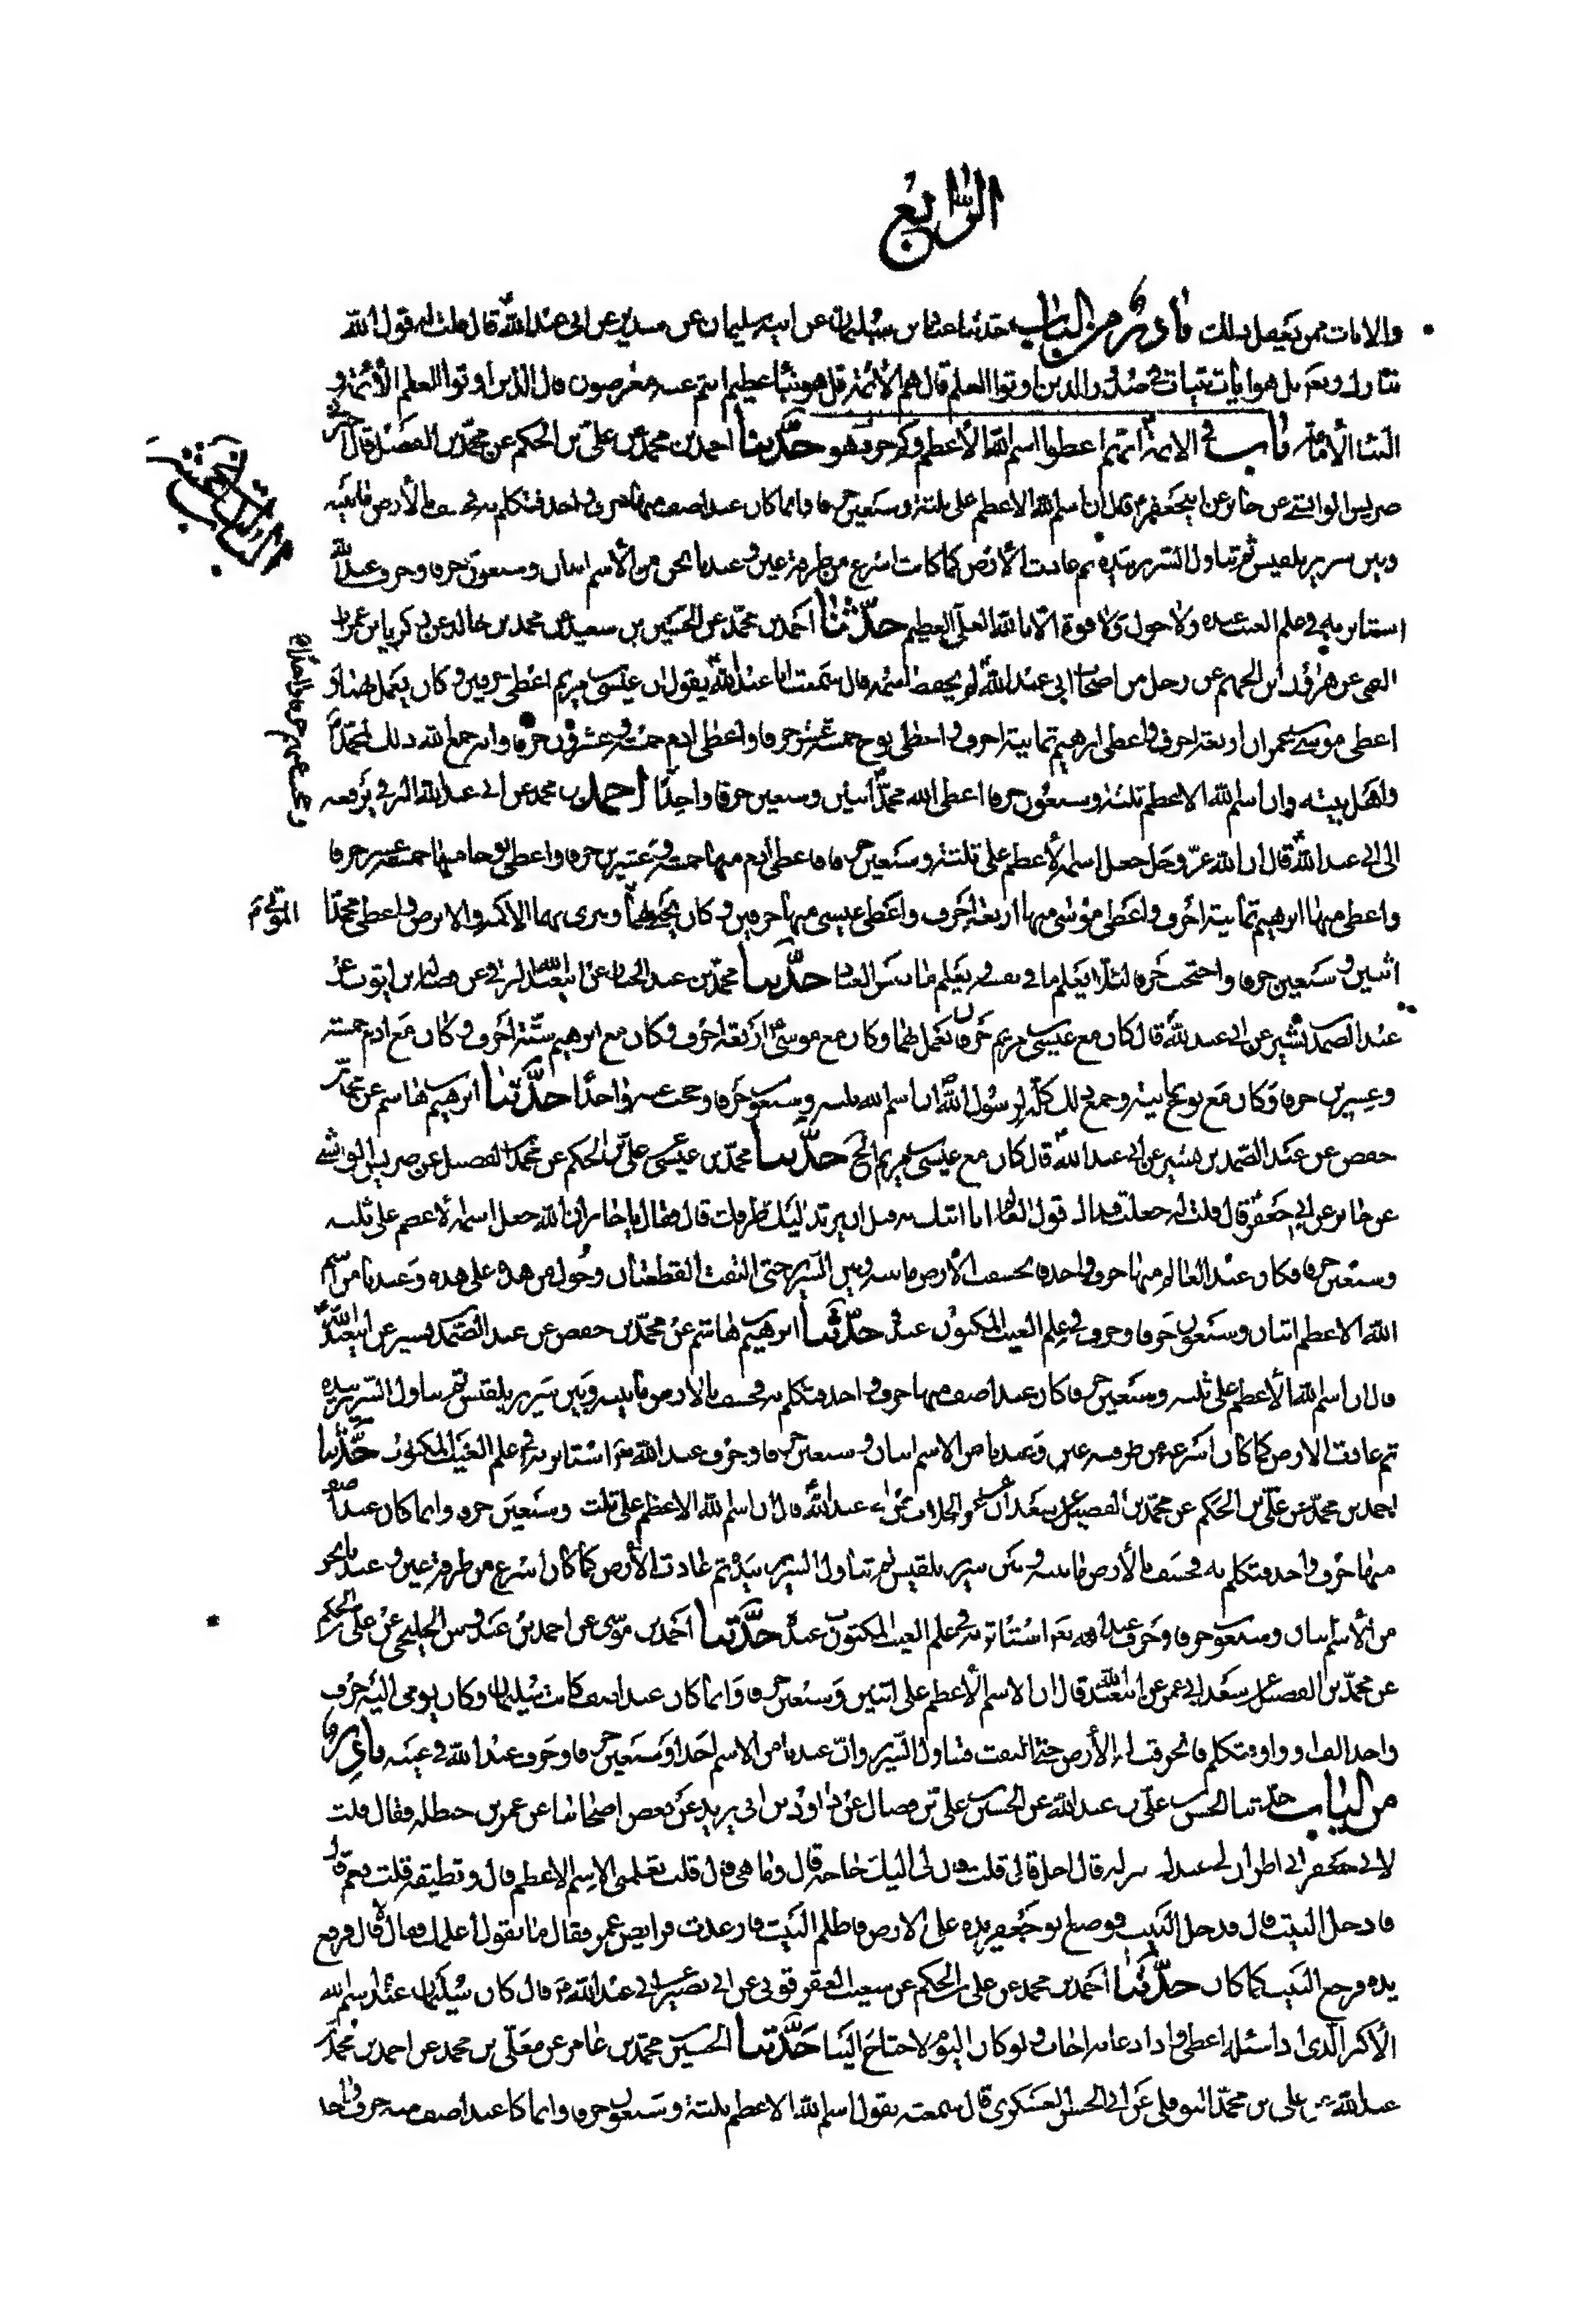 الرابع
والامات ممن يفصل بذلك نادر من الباب حدثنا عباس بن سليمان عن ابيه سليمان عن سدير عن ابى عبد الله قال قلت له قول الله
تبارك وتعالى بل هو ايات بينات فى صدور الذين اوتوا العلم قال هم الائمة قل هو نبا عظيم انتم عنه معرضون قال الذين اوتوا العلم الائمة و
النبا الامامة باب فى الائمة انهم اعطوا اسم الله الاعظم وكم حرف هو حدثنا احمد بن محمد عن على بن الحكم عن محمد بن الفضيل قال اخبرنى
ضريس الوابشى عن جابر عن ابيجعفر قال ان اسم الله الاعظم على ثلثة وسبعين حرفا وانما كان عند اصف منها حرف واحد فتكلم به فخسف بالارض ما بينه
وبين سرير بلقيس ثم تناول السرير بيده ثم عادت الارض كما كانت اسرع من طرفة عين وعندنا نحن من الاسم اثنان وسبعون حرفا وحرف عند الله
استاثر به فى علم الغيب عنده ولا حول ولا قوة الا بالله العلى العظيم حدثنا احمد بن محمد عن الحسين بن سعيد عن محمد بن خالد عن زكريا بن عمران
القمى عن هرون بن الجهم عن رجل من اصحاب ابى عبد الله لم يحفظ اسمه قال سمعت ابا عبد الله يقول ان عيسى بن مريم اعطى حرفين وكان يعمل بهما و
اعطى موسى بن عمران اربعة احرف واعطى ابرهيم ثمانية احرف واعطى نوح خمسة عشر حرفا واعطى ادم خمسة وعشرون حرفا وانه جمع الله ذلك لمحمد
واهل بيته وان اسم الله الاعظم ثلثة وسبعون حرفا اعطى الله محمد اثنين وسبعين حرفا واحدا احمد بن محمد عن ابى عبد الله البرقى يرفعه
الى ابى عبد الله قال ان الله عز وجل جعل اسمه الاعظم على ثلثة وسبعين حرفا فاعطى ادم منها خمسة وعشرين حرفا واعطى نوحا منها خمسة عشر حرفا
واعطى منها ابرهيم ثمانية احرف واعطى موسى منها اربعة احرف واعطى عيسى منها حرفين وكان يحيى بهما ويبرى بهما الاكمه والابرص واعطى محمدا
الموتى
اثنين وسبعين حرفا واحتجب حرفا لئلا يعلم ما فى نفسه ويعلم ما نفس العباد حدثنا محمد بن عبد الجبار عن ابيعبد الله البرقى عن فضالة بن ايوب عن
عبد الصمد بن بشير عن ابى عبد الله قال كان مع عيسى بن مريم حرفان يعمل بهما وكان مع موسى اربعة احرف وكان مع ابرهيم ستة احرف وكان مع ادم خمسة
وعشرين حرفا وكان مع نوح ثمانية وجمع ذلك كله لرسول الله ان اسم الله ثلثة وسبعون حرفا وحجب عنه واحدا حدثنا ابرهيم بن هاشم عن محمد بن
حفص عن عبد الصمد بن بشير عن ابى عبد الله قال كان مع عيسى بن مريم الخ حدثنا محمد بن عيسى عن على بن الحكم عن محمد بن الفضيل عن ضريس الوابشى
عن جابر عن ابى جعفر قال قلت له جعلت فداك قول العالم انا اتيك به قبل ان يرتد اليك طرفك قال فقال يا جابر ان الله جعل اسمه الاعظم على ثلثة
وسبعين حرفا فكان عند العالم منها حرف واحد فانخسفت الارض ما بينه وبين السرير حتى التفت القطعتان وحول من هذه على هذه وعندنا من اسم
الله الاعظم اثنان وسبعون حرفا وحرف فى علم الغيب المكنون عنده حدثنا ابرهيم بن هاشم عن محمد بن حفص عن عبد الصمد بن بشير عن ابيعبد الله
قال ان اسم الله الاعظم على ثلثة وسبعين حرفا كان عند اصف منها حرف واحد فتكلم به فخسف بالارض ما بينه وبين سرير بلقيس ثم تناول السرير بيده
ثم عادت الارض كما كان اسرع من طرفة عين وعندنا من الاسم اثنان وسبعين حرفا وحرف عند الله تعالى استاثر به فى علم الغيب المكنون حدثنا
احمد بن محمد عن على بن الحكم عن محمد بن الفضيل عن سعد ابى عمرو الجلاب عن ابى عبد الله قال ان اسم الله الاعظم على ثلث وسبعين حرفا وانما كان عند اصف
منها حرف واحد فتكلم به فخسف بالارض ما بينه وبين سرير بلقيس ثم تناول السرير بيده ثم عادت الارض كما كان اسرع من طرفة عين وعندنا نحن
من الاسم اثنان وسبعون حرفا وحرف عند الله تعالى استاثر به فى علم الغيب المكتوب عنده حدثنا احمد بن موسى عن احمد بن عبدوس الخليجى عن على بن الحكم
عن محمد بن الفضيل عن سعد ابى عمر عن ابيعبد الله قال ان الاسم الاعظم على اثنين وسبعين حرفا وانما كان عند اصف كاتب سليمان وكان يومى اليه حرف
واحد الف او واو فتكلم فانخرقت له الارض حتى التفت فتناول السرير وان عندنا من الاسم احدا وسبعين حرفا وحرف عند الله فى غيبه نادر
من الباب حدثنا الحسن بن على بن عبد الله عن الحسن بن على بن فضال عن داود بن ابى يزيد عن بعض اصحابنا عن عمر بن حنظله فقال قلت
لابى جعفر انى اظن ان لى عندك منزلة قال اجل قال قلت فان لى اليك حاجة قال وما هى قال قلت تعلمنى الاسم الاعظم قال وتطيقه قلت نعم قال
فادخل البيت قال فدخل البيت فوضع ابو جعفر يده على الارض فاظلم البيت فارعدت فرايص عمر فقال ما تقول اعلمك فقال لا قال فرفع
يده فرجع البيت كما كان حدثنا احمد بن محمد عن على بن الحكم عن شعيب العقرقوفى عن ابى بصير عن ابى عبد الله قال كان سليمان عنده اسم الله
الاكبر الذى اذا سئله اعطى واذا دعا به اجاب ولو كان اليوم لاحتاج الينا حدثنا الحسين بن محمد بن عامر عن معلى بن محمد عن احمد بن محمد بن
عبد الله عن على بن محمد النوفلى عن ابى الحسن العسكرى قال سمعته يقول اسم الله الاعظم ثلثة وسبعون حرفا وانما كان عند اصف منه حرف واحد